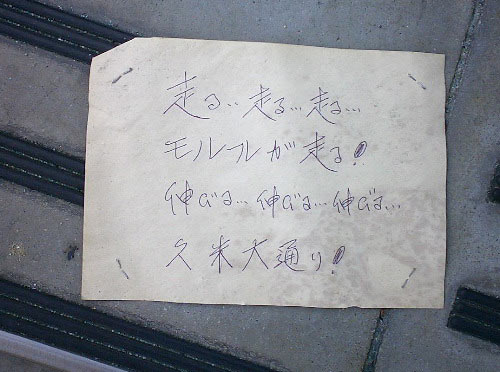 走る‥走る…走る…
モルフルが走る!
伸びる…伸びる…伸びる…
久米大通り!